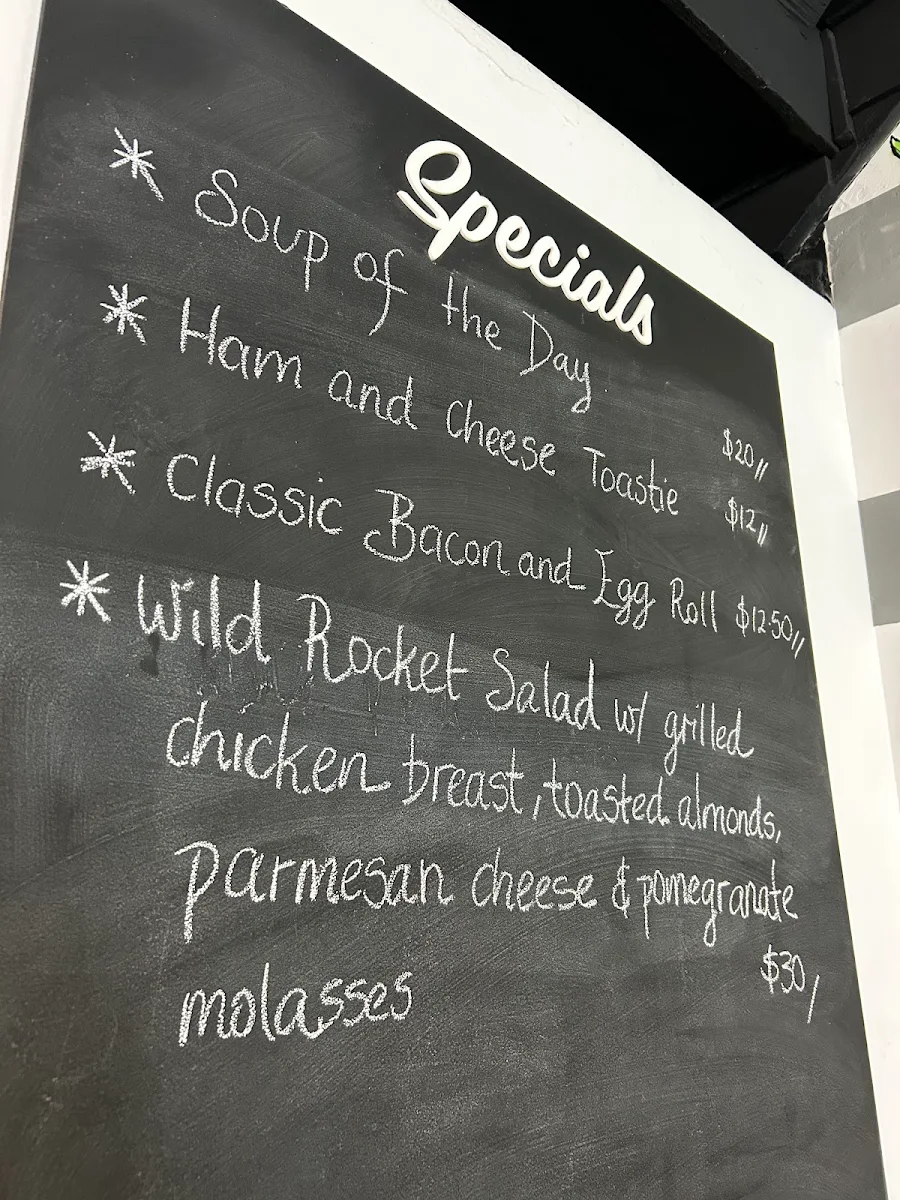 Specials
* Soup of the Day. $20,,
* Ham and Cheese Toastie $12,,
* Classic Bacon and Egg Roll $12.50,,
* Wild Rocket Salad w/ grilled
chicken breast, toasted almonds,
parmesan cheese & pomegranate
molasses $30/